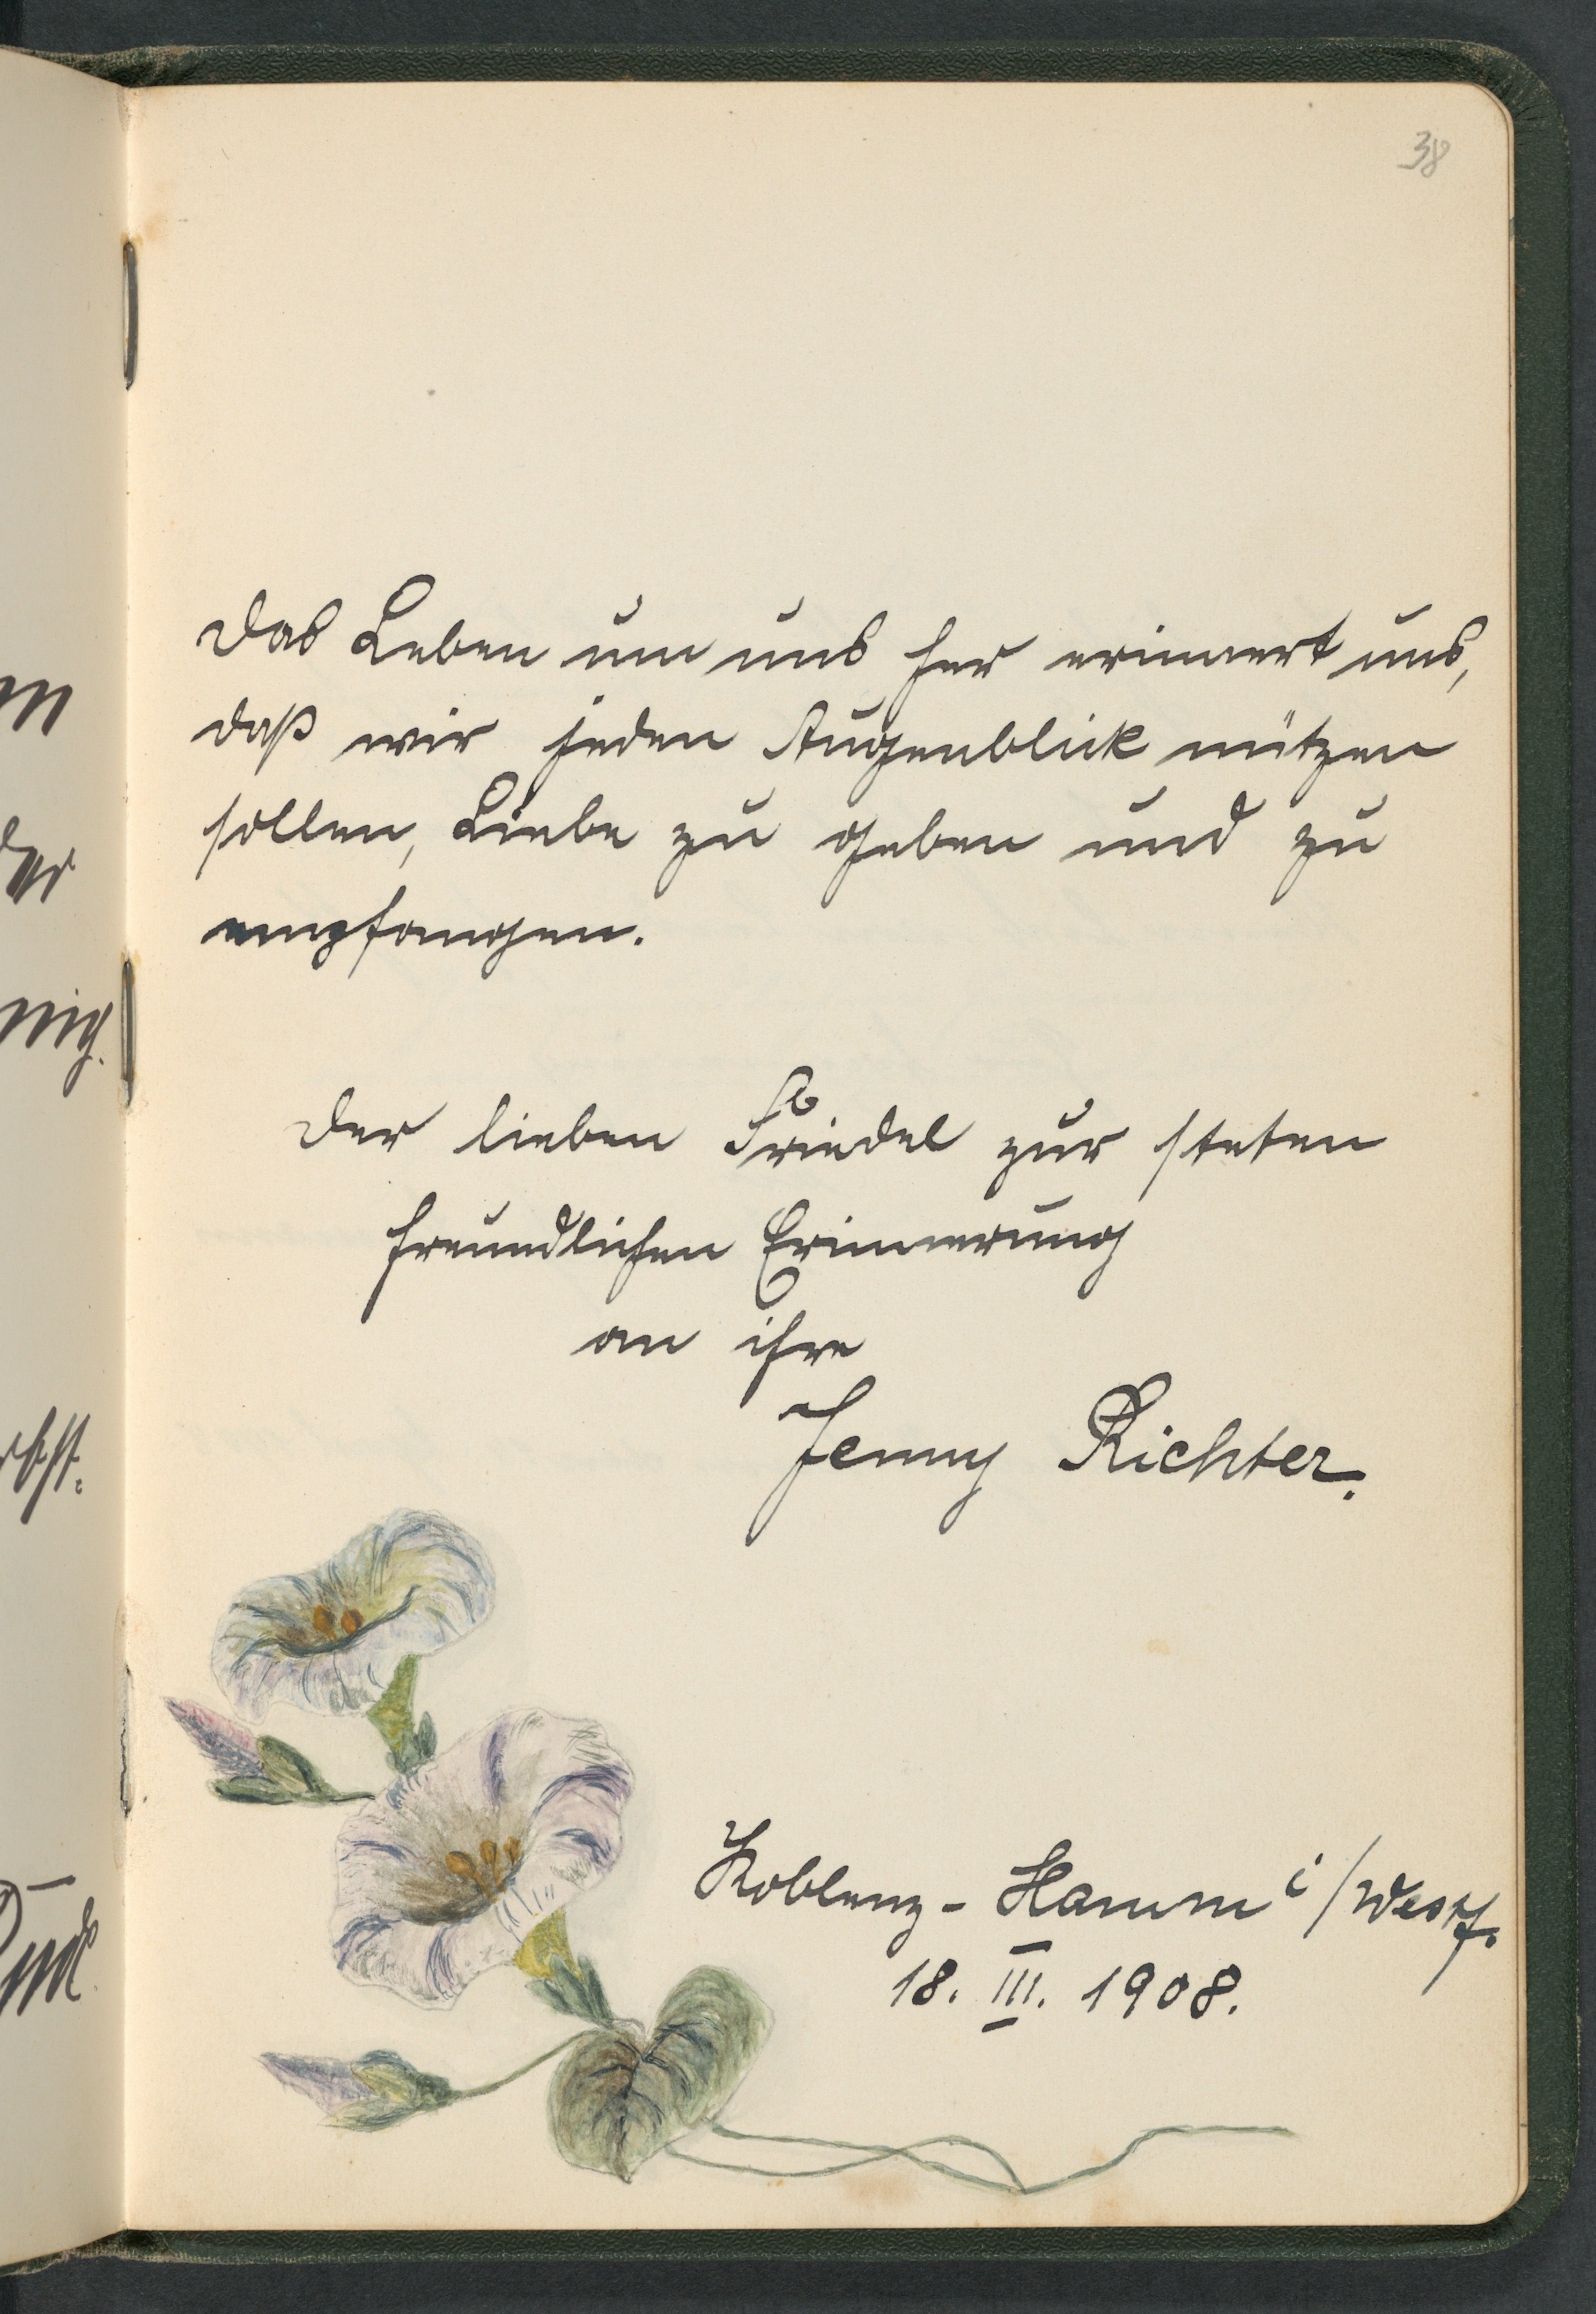 38
Das Leben um uns her erinnert uns,
daß wir jeden Augenblick nützen
sollen, Liebe zu geben und zu
empfangen.
Der lieben Friedel zur steten
freundlichen Erinnerung
an ihre
Jenny Richter.
Koblenz - Hamm i/Westf.
18. III. 1908.